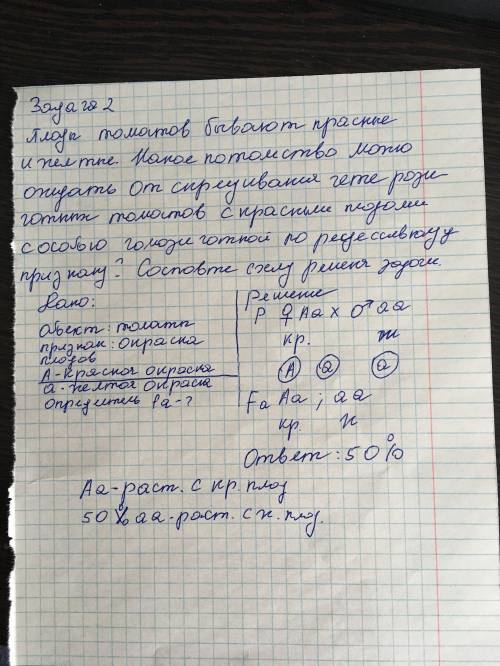 Задача 2
Плоды томатов бывают красные
и желтые. Какое потомство можно
ожидать от скрещивания гетерози
готных томатов с красными плодами
с особью гомозиготной по рецессивному
признаку? Составте схему решения задачи.
Дано:
Обект: томаты
признак: окраска
плодов
А-красная окраска
а-желтая окраска
Определить Fа-?
Решение
P ♀ Aa x ♂ aa
кр. ж
A a a
Fa Aa ; aa
кр. ж
Ответ: 50%
Aa-раст. с кр. плод
50% aa-раст. с ж. плод.